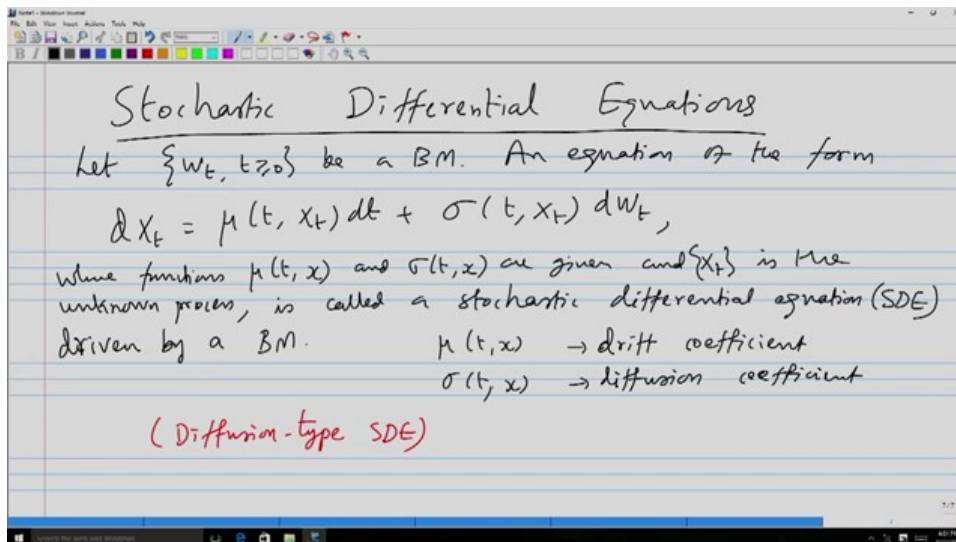 Note1 - Windows Journal
File Edit View Insert Actions Tools Help
B I
Stochastic Differential Equations
Let {W_t, t≥0} be a BM. An equation of the form
dX_t = μ(t, X_t) dt + σ(t, X_t) dW_t,
where functions μ(t, x) and σ(t, x) are given and {X_t} is the
unknown process, is called a stochastic differential equation (SDE)
driven by a BM. μ(t, x) → drift coefficient
σ(t, x) → diffusion coefficient
(Diffusion-type SDE)
7/7
Search the web and Windows